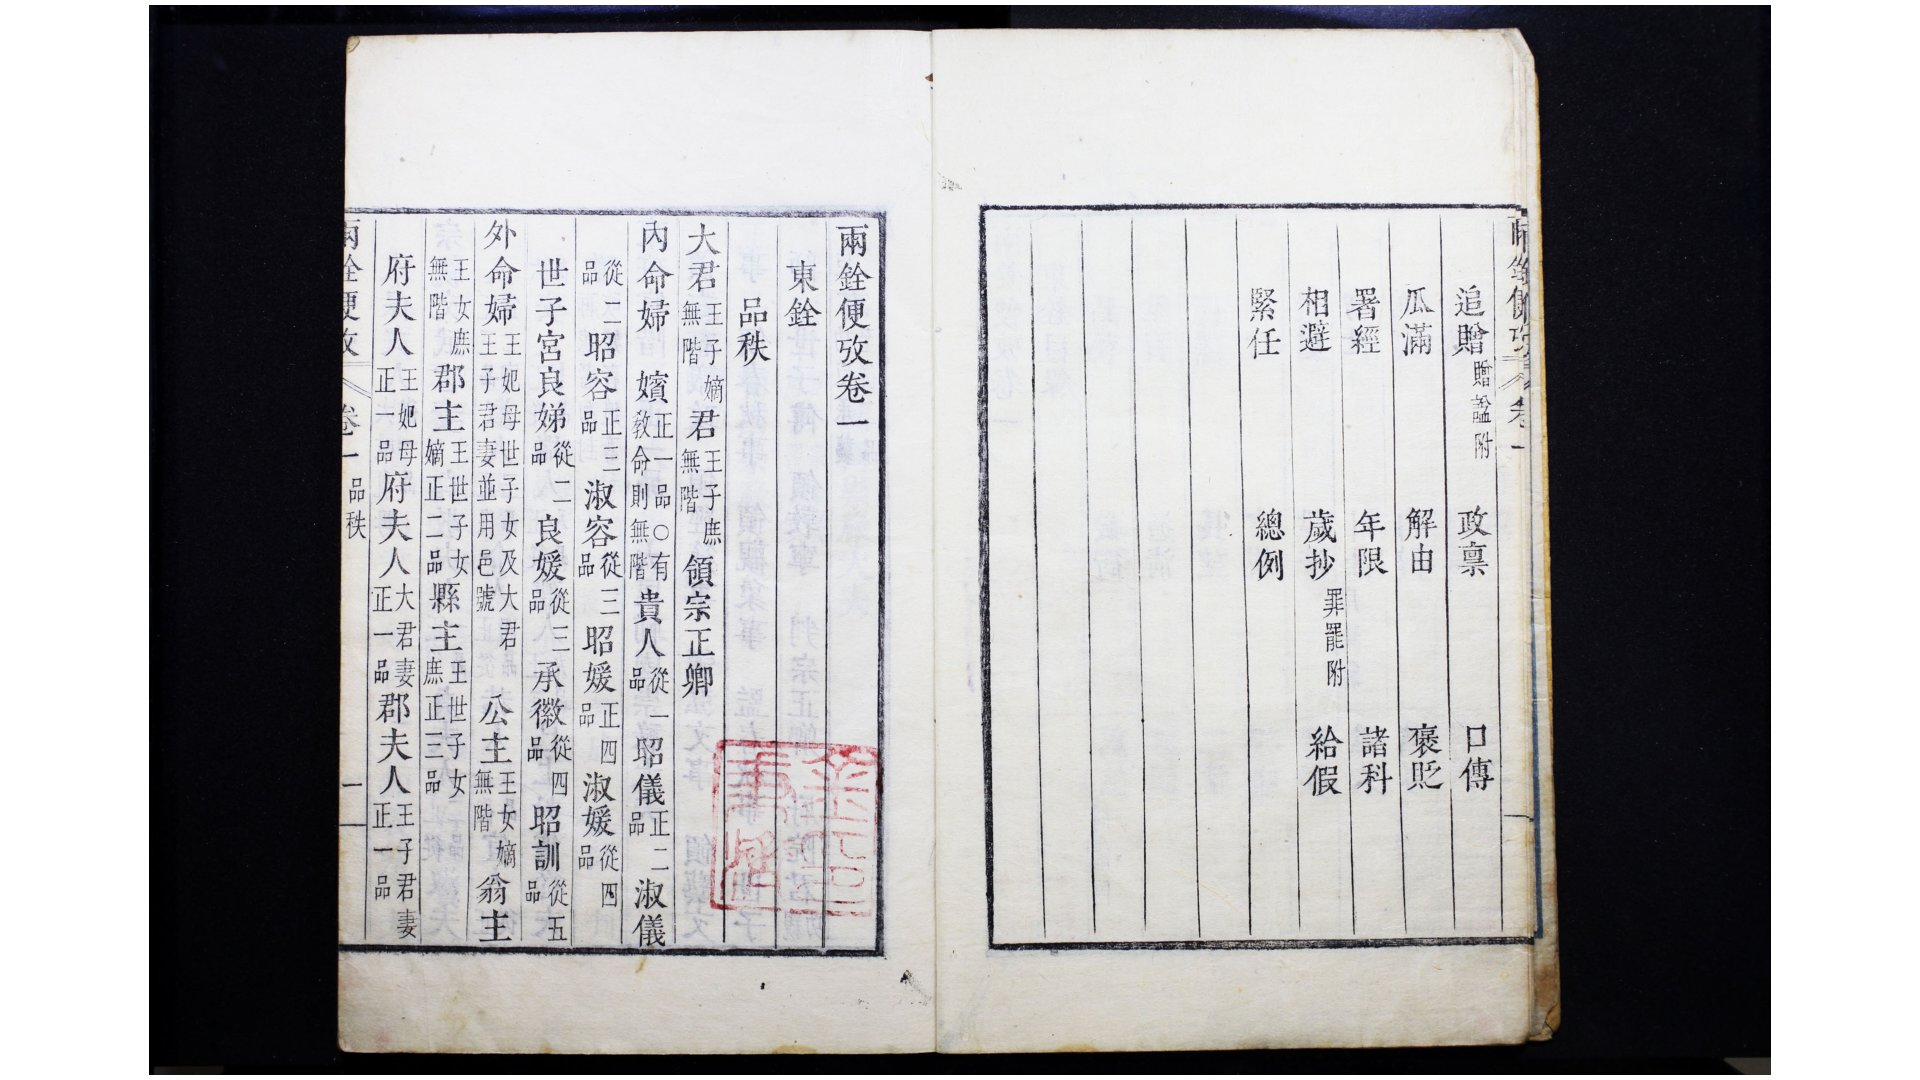 兩銓便攷 卷一
追贈贈諡附 政稟 口傳
瓜滿 解由 褒貶
署經 年限 諸科
相避 歲抄罪罷附 給假
緊任 總例
兩銓便攷卷一
東銓
品秩
大君王子嫡無階君王子庶無階領宗正卿
內命婦 嬪正一品○有敎命則無階貴人從一品昭儀正二品淑儀
從二品昭容正三品淑容從三品昭媛正四品淑媛從四品
世子宮良娣從二品良媛從三品承徽從四品昭訓從五品
外命婦王妃母世子女及大君王子君妻並用邑號 公主王女嫡無階翁主
王女庶無階郡主王世子女嫡正二品縣主王世子女庶正三品
府夫人王妃母正一品府夫人大君妻正一品郡夫人王子君妻正一品
兩銓便攷 卷一 品秩 一